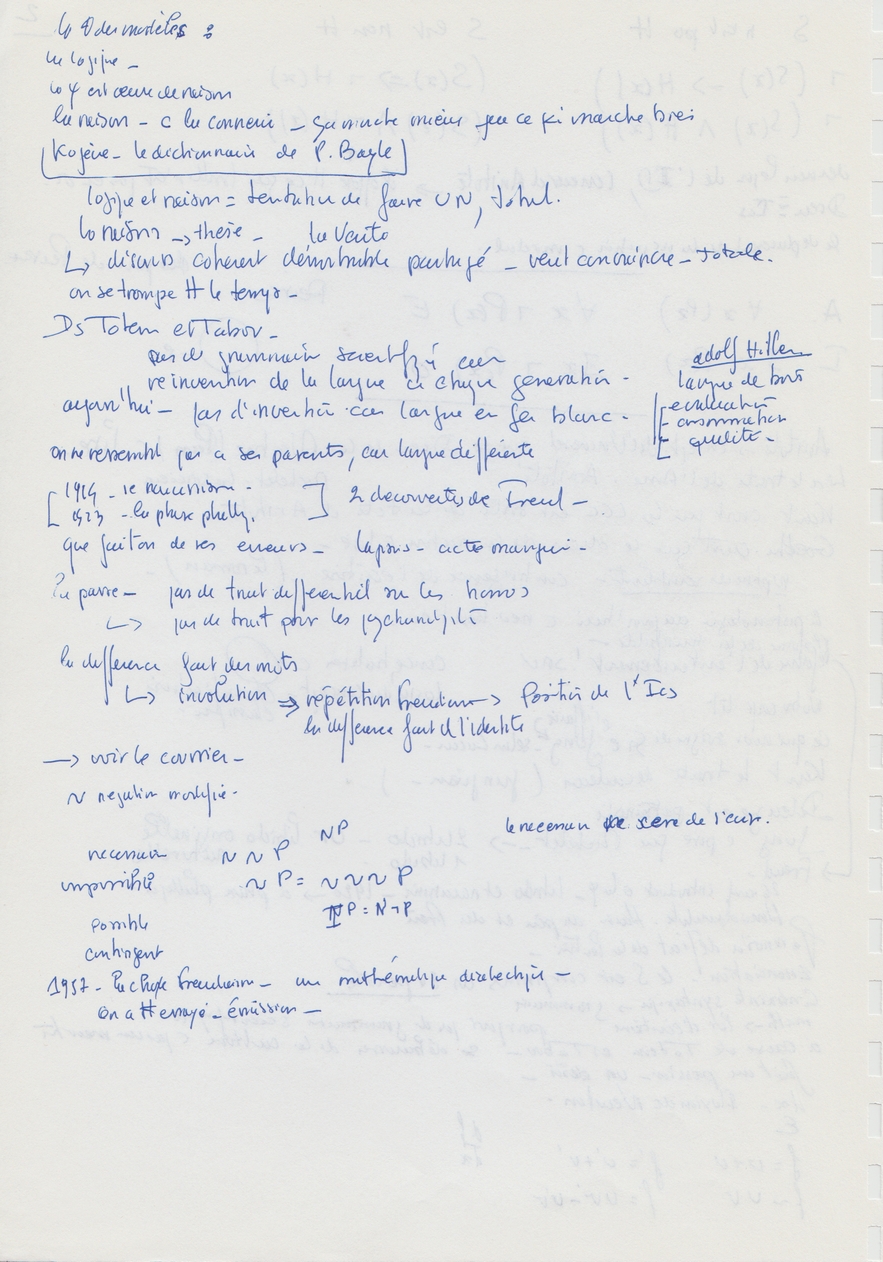 la θ des modèles :
la logique -
la ψ est œuvre de raison
la raison - c la connerie - ça marche mieux que ce ki marche bien
Kojève - le dictionnaire de P. Bayle
logique et raison = tentative de faire UN, total.
la raison → thèse - la vérité
↳ discours cohérent démontrable partagé - veut convaincre - totale.
on se trompe tt le temps -
Ds Totem et Tabou -
pas de grammaire scientifique car
réinvention de la langue à chaque génération -
adolf Hitler
langue de bois
aujourd'hui - pas d'invention car langue en fer blanc -
évaluation
consommation
qualité -
on ne ressemble pas a ses parents, car langue différente
1914 - le narcissisme -
1923 - la phase phalliq.
2 découvertes de Freud -
que fait on de ses erreurs - lapsus - acte manqué -
la passe - pas de trait différentiel sur les homos
↳ pas de trait pour les psychanalystes
la différence fait des mots
↳ involution ⇒ répétition freudienne → Position de l'Ics
la différence fait d l'identité
→ voir le courrier -
~ negation modifiée -
NP
le necessaire de l'eur.
necessaire ~ ~ P
impossible ~ P = ~ ~ ~ P
possible
NP = N¬P
contingent
1957 - la chose freudienne - une mathématique dialectique -
on a tt essayé - émission -